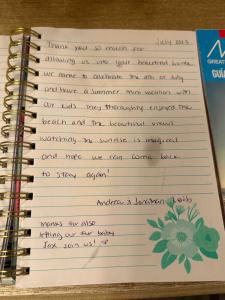 July 2023
Thank you so much for
allowing us into your beautiful home
we came to celebrate the 4th of July
and have a summer mini vacation with
our kids. They thoroughly enjoyed the
beach and the beautiful views
watching the sunrise is magical
and hope we can come back
to stay again!
Andrea & Jonathan
thanks for also
letting our fur baby
Jax join us!
GREAT
GUÍA